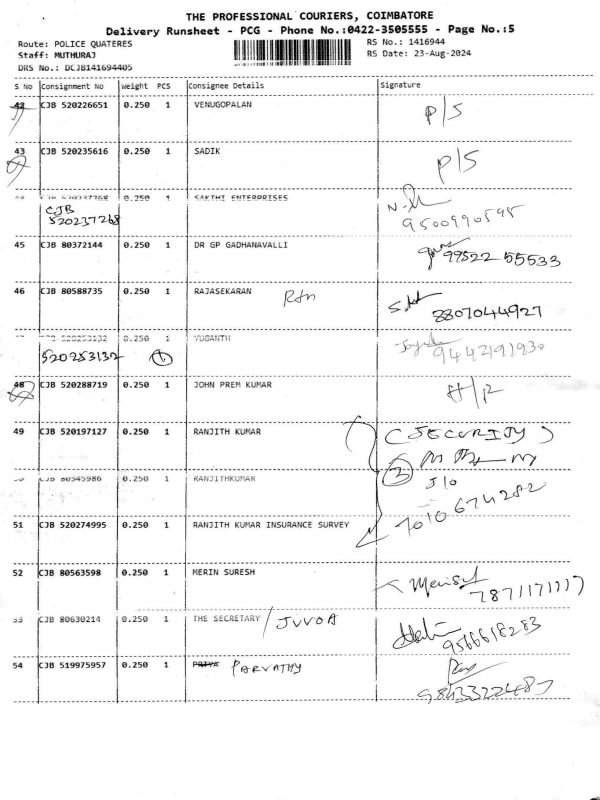 THE PROFESSIONAL COURIERS, COIMBATORE
Delivery Runsheet - PCG - Phone No.:0422-3505555 - Page No.:5
Route: POLICE QUATERES RS No.: 1416944
Staff: MUTHURAJ RS Date: 23-Aug-2024
DRS No.: DCJB141694405
S No Consignment No Weight PCS Consignee Details Signature
42 CJB 520226651 0.250 1 VENUGOPALAN P/S
43 CJB 520235616 0.250 1 SADIK P/S
44 CJB 520237268 0.250 1 SAKTHI ENTERPRISES
CJB
520237268 9500990595
45 CJB 80372144 0.250 1 DR GP GADHANAVALLI 99522 55533
46 CJB 80588735 0.250 1 RAJASEKARAN 8807044927
CJB 520253132 0.250 1 YUGANTH
520253132 1 9442191930
48 CJB 520288719 0.250 1 JOHN PREM KUMAR
49 CJB 520197127 0.250 1 RANJITH KUMAR (SECURITY)
3
50 CJB 80545986 0.250 1 RANJITHKUMAR
7010674282
51 CJB 520274995 0.250 1 RANJITH KUMAR INSURANCE SURVEY
52 CJB 80563598 0.250 1 MERIN SURESH
53 CJB 80630214 0.250 1 THE SECRETARY / JVVOA
9566618283
54 CJB 519975957 0.250 1 PRIYA PARVATHY